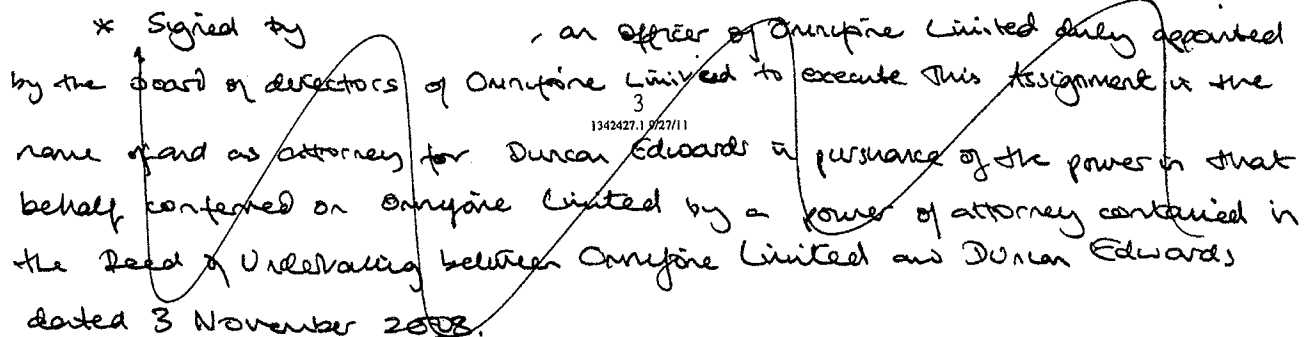 * Signed by , an officer of Omnifone Limited duly appointed
by the board of directors of Omnifone Limited to execute this Assignment in the
3
1342427.1 9/27/11
name of and as attorney for Duncan Edwards in pursuance of the power in that
behalf conferred on Omnifone Limited by a power of attorney contained in
the Deed of Undertaking between Omnifone Limited and Duncan Edwards
dated 3 November 2008.